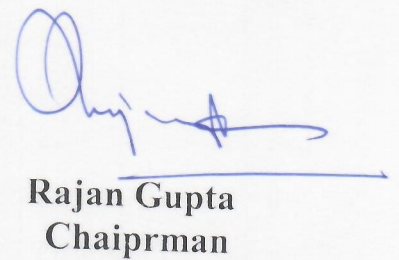 Rajan Gupta
Chaiprman